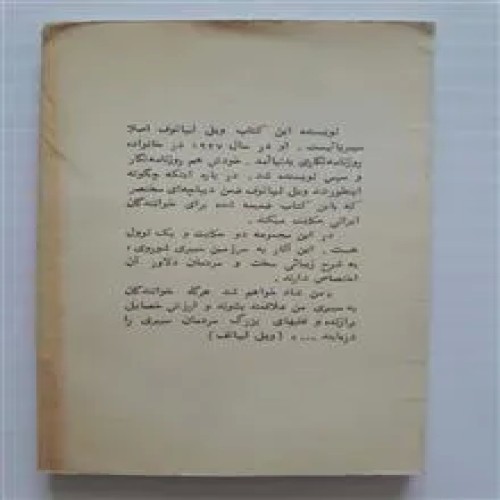 نویسنده این کتاب ویل لیپاتوف اصلا
سیبریائیست . او در سال ۱۹۲۷ در خانواده
روزنامه‌نگاری بدنیا آمد . خودش هم روزنامه‌نگار
و سپس نویسنده شد . در باره اینکه چگونه
اینطور شد ویل لیپاتوف ضمن دیباچه‌ای مختصر
که باین کتاب ضمیمه شده برای خوانندگان
ایرانی حکایت میکند .
در این مجموعه دو حکایت و یک نوول
هست . این آثار به سرزمین سیبری شوروی ،
به شرح زیبائی سخت و مردمان دلاور آن
اختصاص دارند .
«من شاد خواهم شد هرگاه خوانندگان
به سیبری من علاقمند بشوند و ارزش خصایل
برازنده و قلبهای بزرگ مردمان سیبری را
دریابند ... » ( ویل لیپاتف )